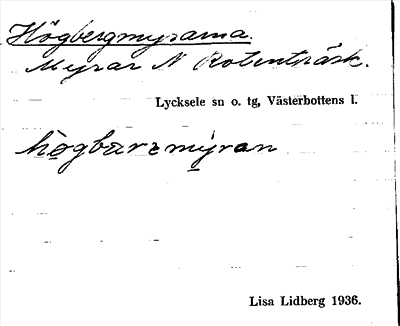 Högbergmyrarna.
Myrar N Rotenträsk.
Lycksele sn o. tg, Västerbottens l.
högbarzmyran
Lisa Lidberg 1936.